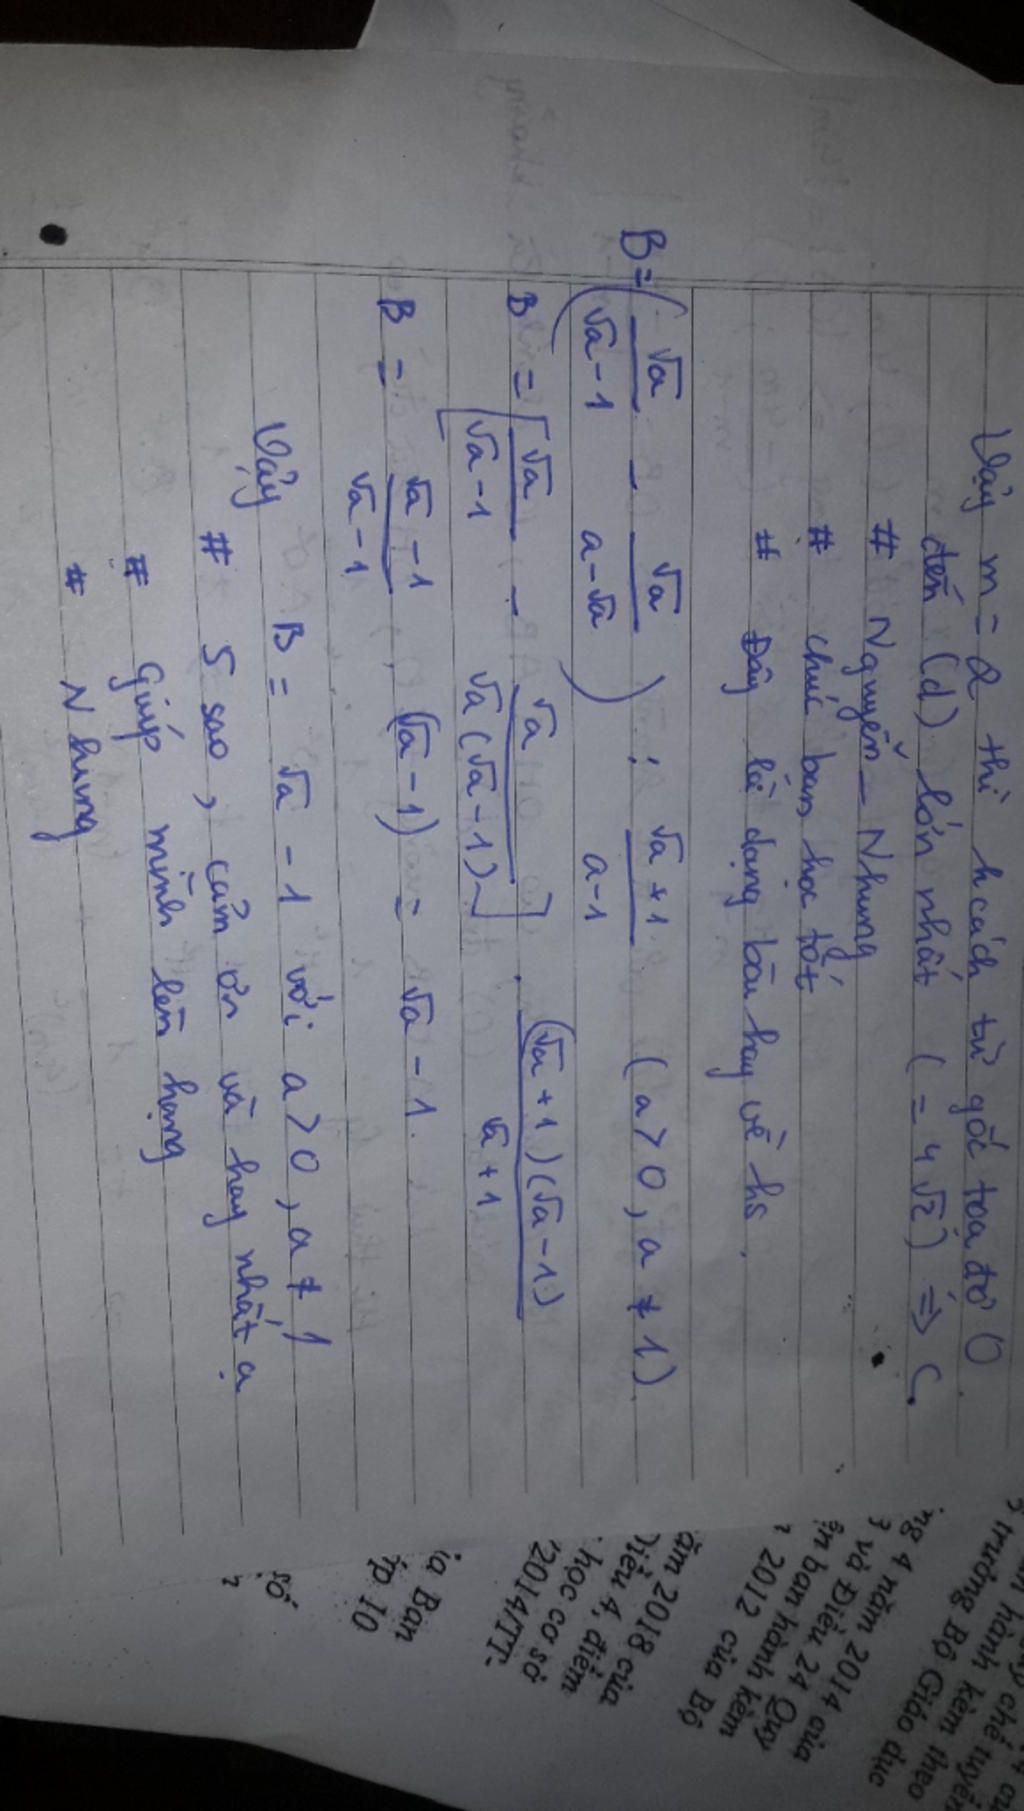 Vậy m = 2 thì k cách từ gốc toạ độ O
đến (d) lớn nhất ( = 4√2 ) => C.
# Nguyễn_Nhung
# chúc bạn học tốt
# Đây là dạng bài hay về hs.
B = ( √a / (√a - 1) - √a / (a - √a) ) : (√a + 1) / (a - 1) ( a > 0, a ≠ 1 )
B = [ √a / (√a - 1) - √a / (√a (√a - 1)) ] . (√a + 1)(√a - 1) / (√a + 1)
B = (√a - 1) / (√a - 1) . (√a - 1) = √a - 1.
Vậy B = √a - 1 với a > 0, a ≠ 1
# 5 sao, cảm ơn và hay nhất ạ
# Giúp mình lên hạng
# Nhung
hành kèm theo
trưởng Bộ Giáo dục
4 năm 2014 của
3 và Điều 24 Quy
ban hành kèm
2012 của Bộ
năm 2018 của
Điều 4, điểm
học cơ sở
2014/TT-
Ban
10
số